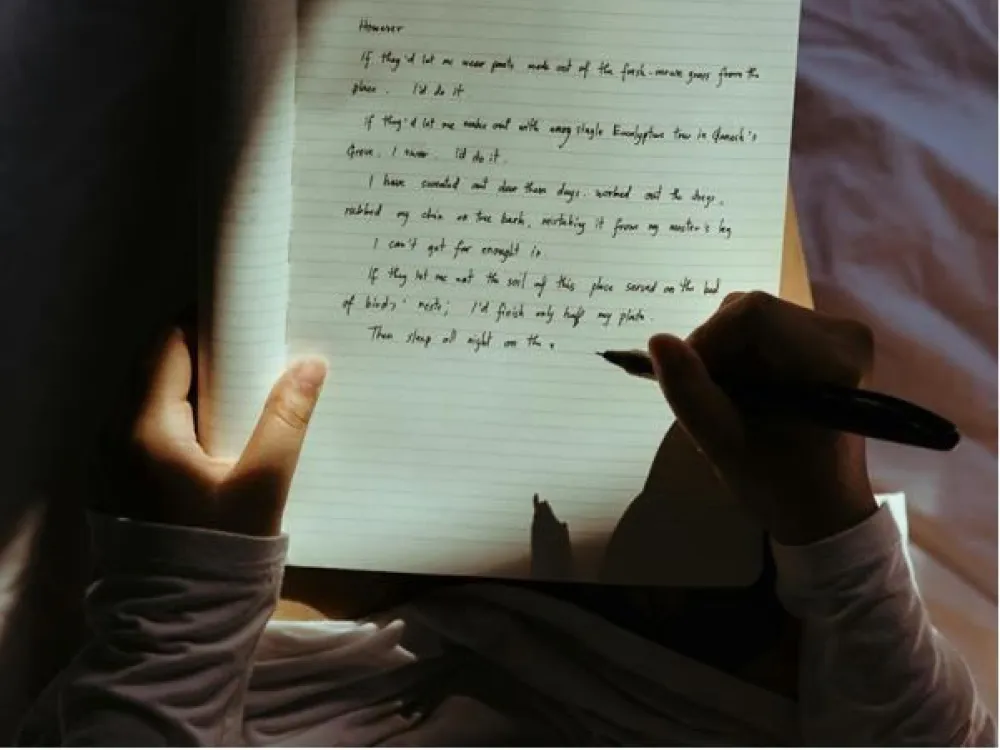 However
If they'd let me wear pants made out of the fresh-mown grass from the
place. I'd do it
If they'd let me make out with every single Eucalyptus tree in Ganesh's
Grove. I swear. I'd do it.
I have sweated out dew these days. worked out the dregs,
rubbed my chin on tree bark, mistaking it from my master's leg
I can't get far enought in.
If they let me eat the soil of this place served on the bed
of birds' nests; I'd finish only half my plate.
Then sleep all night on the